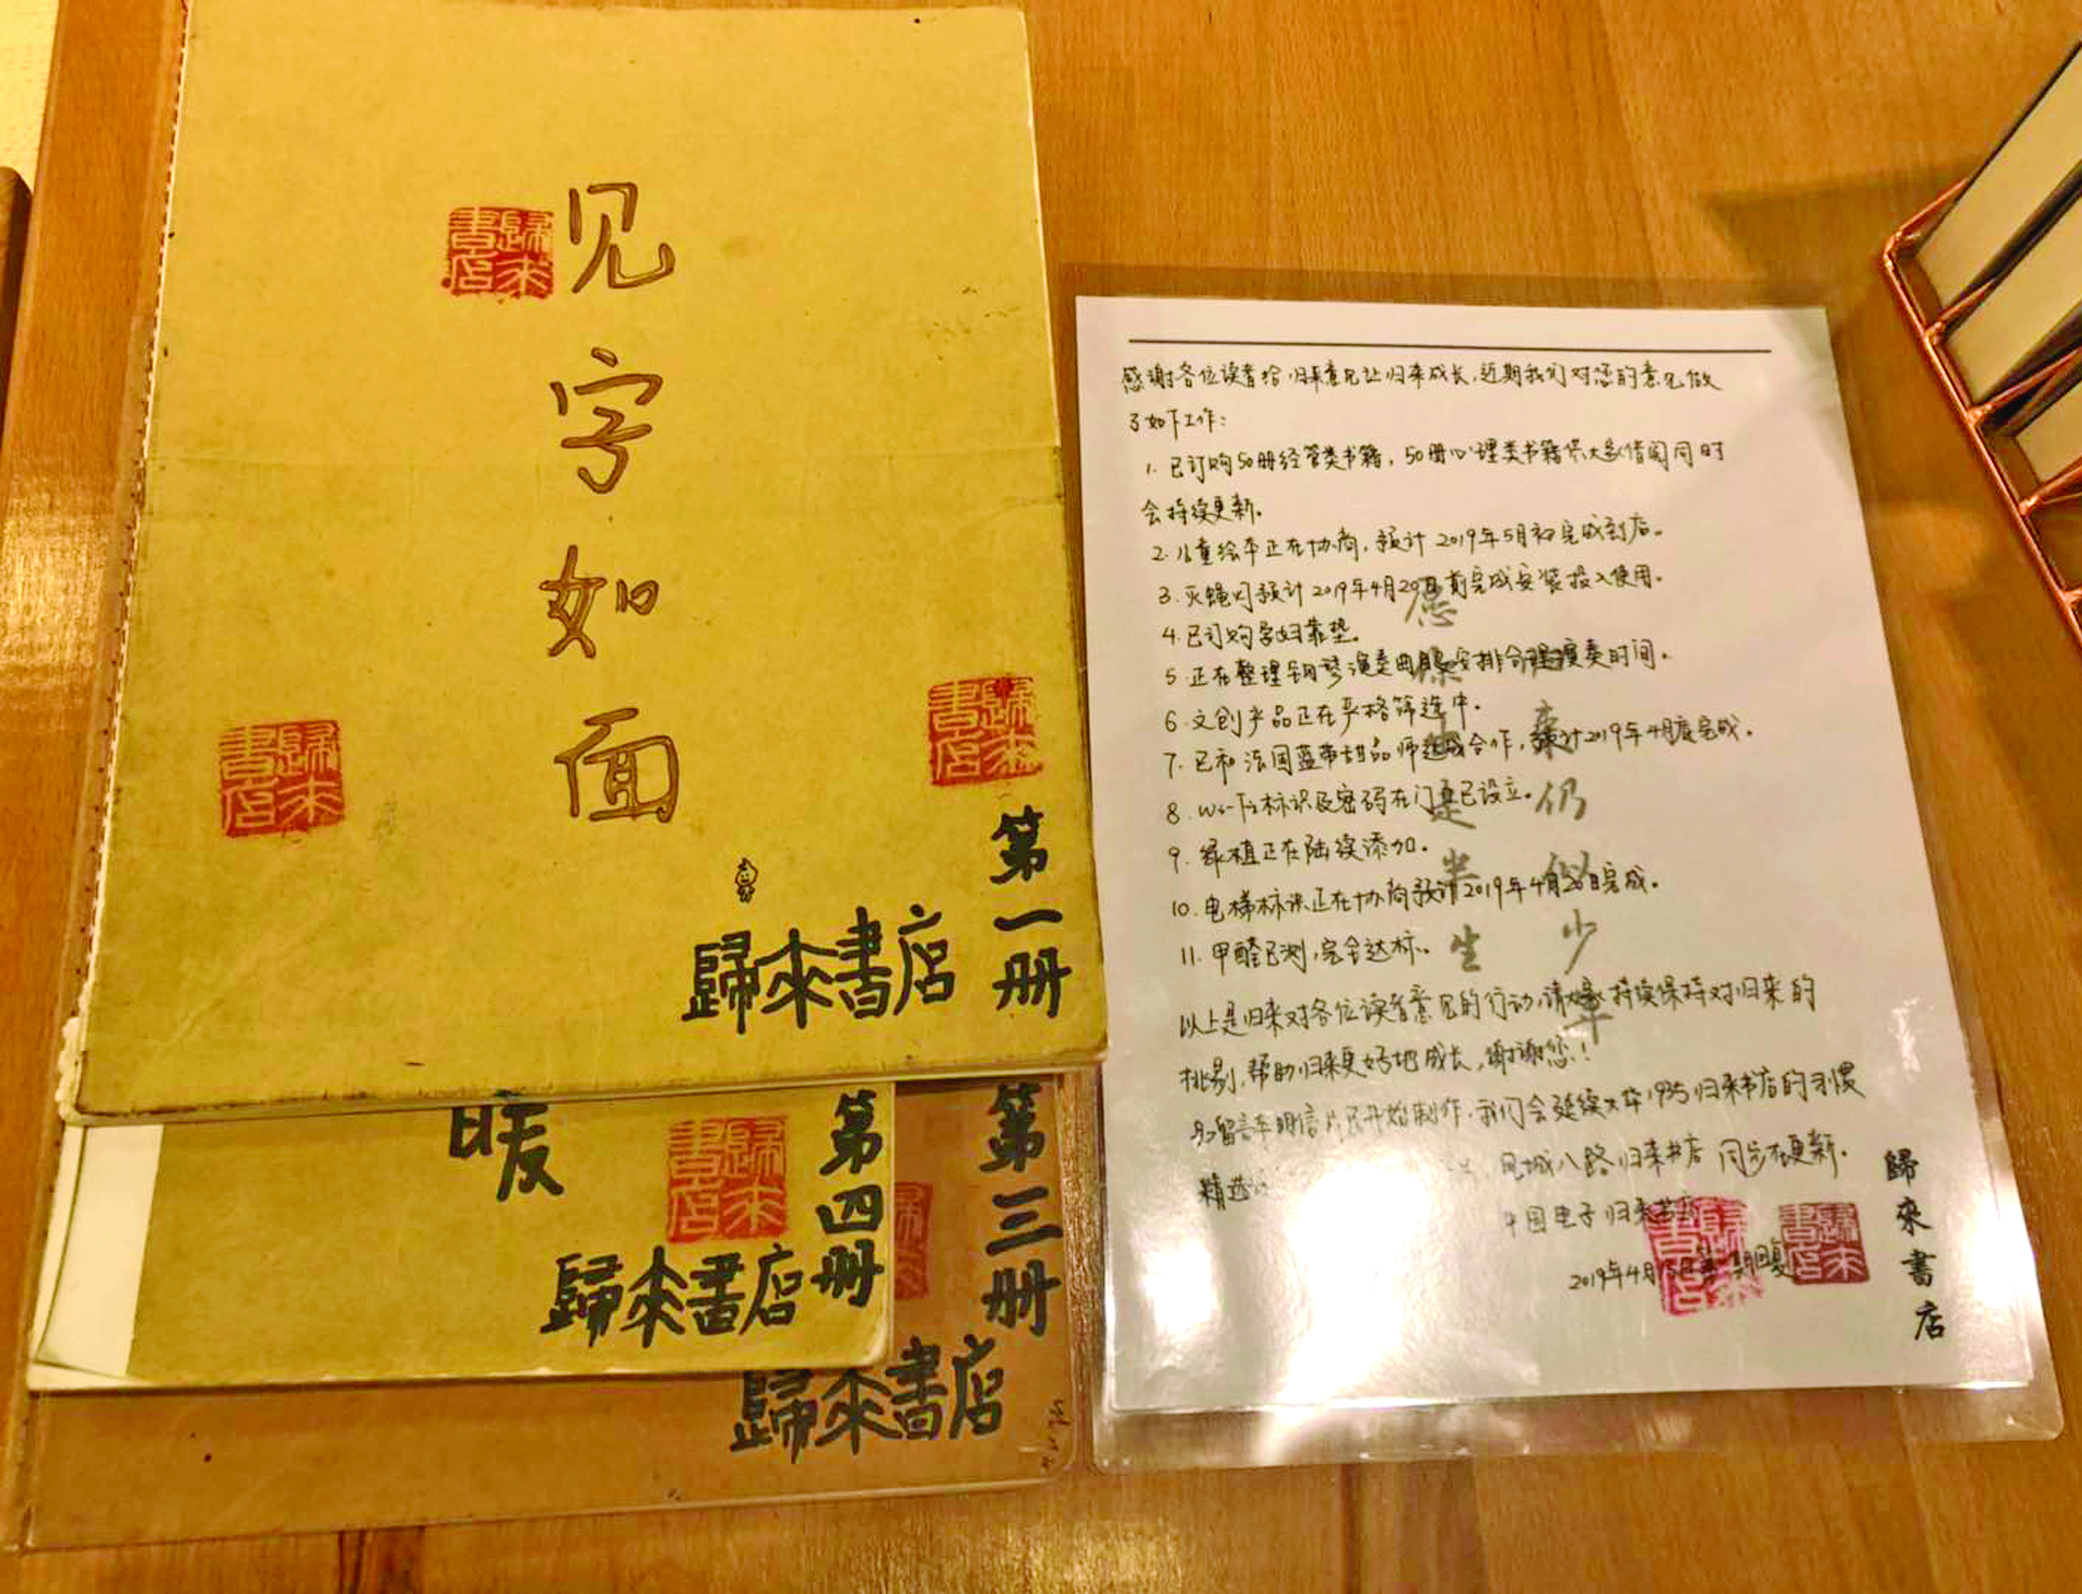 见字如面
歸來書店
歸來書店
歸來書店
第一册
歸來書店
暖
歸來書店
第四册
歸來書店
第三册
歸來書店
感谢各位读者给归来意见让归来成长,近期我们对您的意见做
了如下工作:
1. 已订购50册经管类书籍,50册心理类书籍供大家借阅同时
会持续更新。
2. 儿童绘本正在协商,预计2019年5月初完成到店。
3. 灭蝇灯预计2019年4月20日前完成安装投入使用。
4. 已订购孕妇靠垫。
5. 正在整理钢琴演奏曲目及安排合理演奏时间。
6. 文创产品正在严格筛选中。
7. 已和法国蓝带甜品师达成合作,预计2019年4月底完成。
8. Wi-Fi标识及密码在门口已设立。
9. 绿植正在陆续添加。
10. 电梯标识正在协商预计2019年4月20日完成。
11. 甲醛已测,完全达标。
以上是归来对各位读者意见的行动,请大家持续保持对归来的
挑剔,帮助归来更好地成长,谢谢您!
另留言本明信片已开始制作,我们会延续大华1935归来书店的习惯
精选 凤城八路归来书店同步在更新。
中国电子归来书店
2019年4月 期回复
愿
归
来
仍
是
似
半
少
生
年
歸來書店
歸來書店
歸來書店